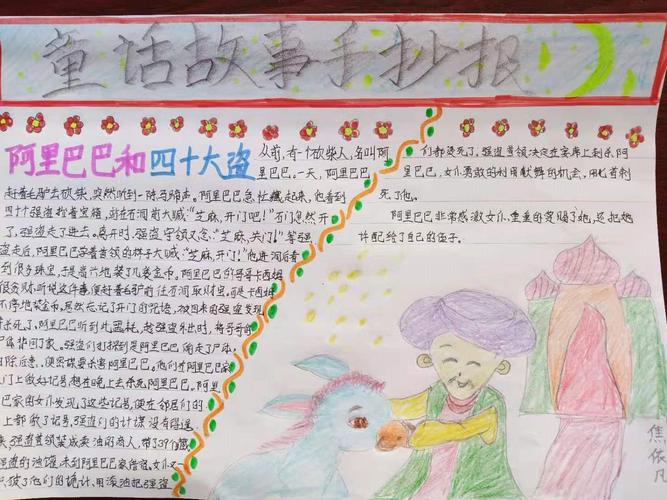 童话故事手抄报
阿里巴巴和四十大盗
从前,有一个砍柴人,名叫阿
里巴巴。一天,阿里巴巴
赶着毛驴去砍柴,突然听到一阵马蹄声。阿里巴巴急忙藏起来,他看到
四十个强盗抬着宝箱,站在石洞前大喊:“芝麻,开门吧!”石门忽然开
了,强盗走了进去。离开时,强盗守领又念:“芝麻,关门!”等强
盗走后,阿里巴巴学着首领的样子大喊:“芝麻,开门吧!”他进洞后看
到很多珠宝,于是高兴地装了几袋金币。阿里巴巴的哥哥卡西姆
很贪财,听说这件事,便赶着毛驴前往石洞取财宝。可是卡西姆
不停地装金币,居然忘记了开门的咒语,被回来的强盗发现
杀死了。阿里巴巴听到此噩耗,趁强盗外出时,将哥哥的
尸体扛回了家。强盗们打探到是阿里巴巴偷走了尸体,
除后患,便密谋要杀害阿里巴巴。他们在阿里巴巴家
门上做好记号,想在晚上去杀死阿里巴巴。阿里
巴家的女仆发现了这些记号,便在邻居们的
上都做了记号,强盗们的计谋没有得逞
来,强盗首领装成卖油的商人,带了37个藏
强盗的油罐,来到阿里巴巴家借宿。女仆又一
识破了他们的诡计,用滚油把强盗
们都烫死了。强盗首领决定在宴席上刺杀阿
里巴巴,女仆勇敢的利用献舞的机会,用匕首刺
死了他。
阿里巴巴非常感激女仆,重重的赏赐了她,还把她
许配给了自己的侄子。
焦依凡